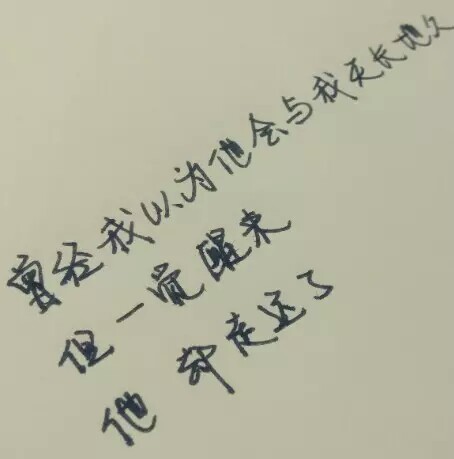 曾经我以为他会与我天长地久
但一觉醒来
他却走远了